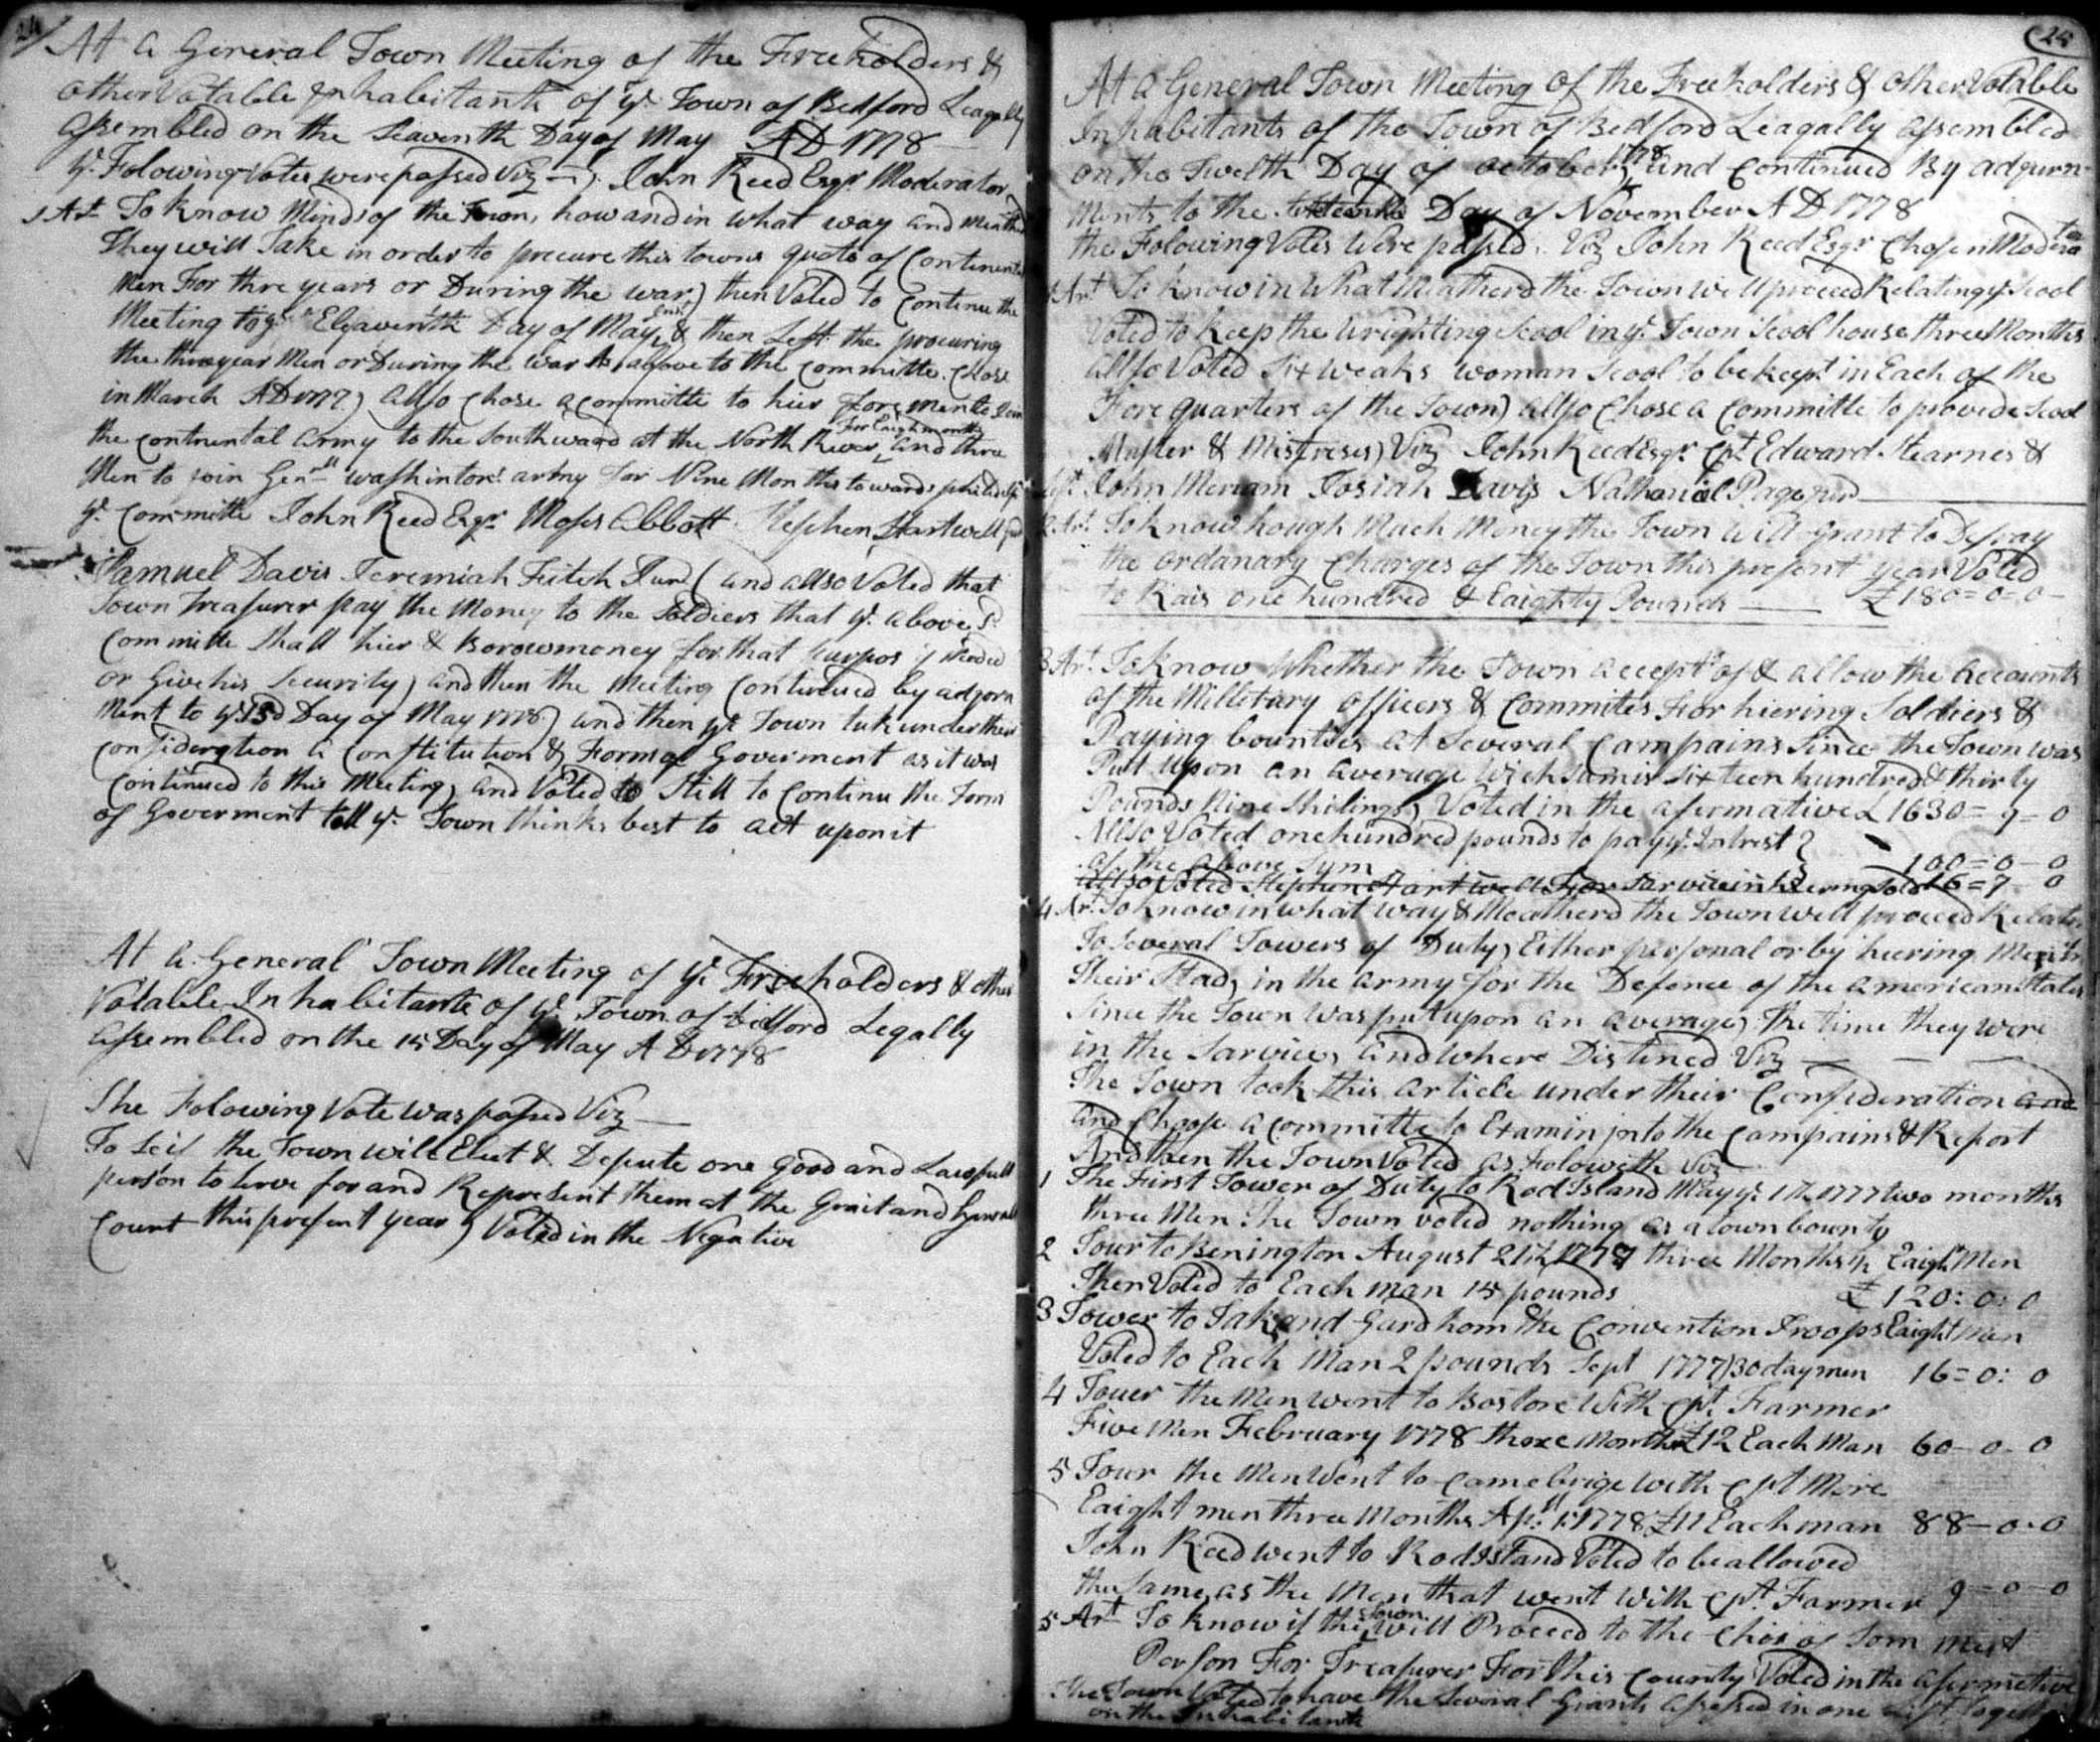 24
At a General Town Meeting of the Freeholders &
other Votable Inhabitants of ye Town of Bedford Leagally
assembled on the Seaventh Day of May AD 1778
ye Folowing Votes were passed Viz John Reed Esqr Moderator
1 Art To know Minds of the Town, how and in what way and
They will Take in order to procure this towns quota of Continental
Men For thre years or During the war) then Voted to Continue the
Meeting to ye Elevaventh Day of May Inst & then Left the procuring
the three year Men or During the war As above to the committe Chose
in March AD 1777) allso Chose a committe to hier fore men to Join
the continental army to the Southward at the North River For Eaigh months and thre
Men to join Genll Washintons army for Nine Months towards
ye Committe John Reed Esqr Moses Abbott Stephen Hartwell
Samuel Davis Jeremiah Fitch Junr (and allso Voted that
Town Treasurer pay the Money to the Soldiers that ye above sd
Committe Shall hier & Borow money for that purpos if Needed
or Give his Security) and then the Meeting Continued by adjorn
ment to ye 15d Day of May 1778) and then ye Town tuk under their
consideration a Constitution & Form of Goverment as it was
Continued to this Meeting) and Voted to Still to Continu the Form
of Goverment till ye Town thinks best to act upon it
At a General Town Meeting of ye Freeholders & other
Votable Inhabitants of ye Town of Bedford Legally
assembled on the 15 Day of May AD 1778
The Folowing Vote was passed Viz
To Se if the Town will Elect & Depute one good and Lawfull
person to Serve for and Represent them at the Grait and General
Court this present year) Voted in the Negative
25
At a General Town Meeting of the Freeholders & other Votable
Inhabitants of the Town of Bedford Leagally assembled
on the Twelth Day of October 1778 and Continued By adjurn
ments to the Day of November AD 1778
the Folowing Votes Were passed Viz John Reed Esqr Chosen Modera
tor
1 Art To know in What Meatherd the Town will proceed Relating ye Scool
Voted to keep the Wrighting Scool in ye Town Scool house three Months
allso Voted Six weaks woman Scool to be keept in Each of the
Fore quarters of the Town) allso Chose a Committe to provide Scool
Master & Mistreses) Viz John Reed Esqr Cpt Edward Stearnes &
John Meriam Josiah Davis Nathaniel Page
2 Art To know hough Much Money the Town Will grant to Defray
the ordanary Charges of the Town this present year Voted
to Rais one hundred & Eaighty Pounds £180=0=0
3 Art To know Whether the Town accept of & allow the accounts
of the Milletary officers & Commites For hiering Soldiers &
Paying bountses at Several Campains Since the Town was
Put upon an average Wich Sum is Sixteen hundred & thirty
Pounds Nine Shilings) Voted in the afermative £1630=9=0
Allso Voted one hundred pounds to pay ye Intrest
of the above Sum 100=0=0
Allso Voted Stephen Hartwell For Sarvice in hiering Sold 16=7 0
4 Art To know in what way & Meatherd the Town will proceed Relat
To Several Towers of Duty) Either personal or by hiering Men in
Their Stad, in the army for the Defence of the American States
Since the Town Was put upon an average) the time they were
in the Sarvice, and where Distined Viz
The Town took this article under their Consideration and
and Choose a committe to Examin into the Campains & Report
And then the Town Voted as Foloweth Viz
1 The First Tower of Duty to Rod Island May ye 1 1777 two months
three Men The Town voted nothing as a town bounty
2 Tour to Benington August 21th 1777 three Months Eaight Men
Then Voted to Each man 15 pounds £120:0:0
3 Tower to Tak and Gard hom the Convention Troops Eaight men
Voted to Each Man 2 pounds Sept 1777 30 day men 16=0:0
4 Touer the Men went to Bostone With Cpt Farmer
Five Men February 1778 three Months £12 Each Man 60-0-0
5 Tour the Men Went to Camebrige with Cpt More
Eaight men three Months Apll 1 1778 £11 Each man 88-0-0
John Reed went to Rod Island Voted to be allowed
the Same as the Men that went with Cpt Farmer 9=0-0
5 Art To know if the Town will Proceed to the Chois of Som meet
Person For Treasurer For this County Voted in the afermative
The Town Voted to have the Several Grants assesed in one List together
on the Inhabitants